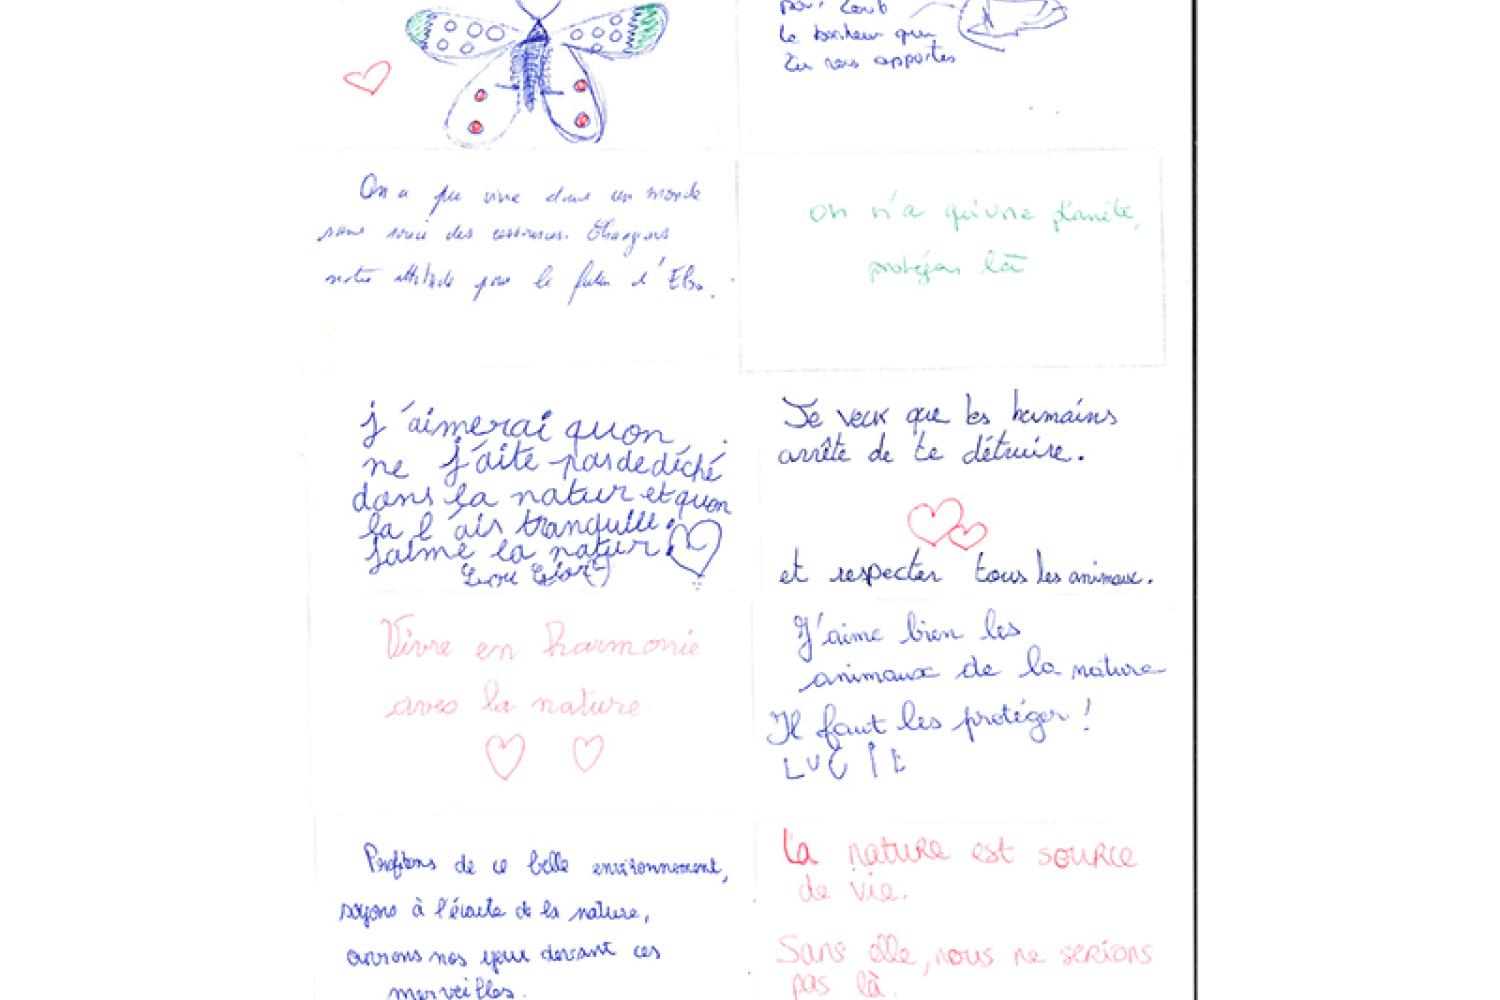 pour tout
le bonheur que
tu nous apportes
On a pu vivre dans un monde
sans souci des ressources. Changeons
notre attitude pour le futur d'Elsa.
on n'a qu'une planète,
protégeons là
j'aimerai quon
ne j'aite pas de déché
dans la natur et quon
la l'ais tranquille.
j'aime la natur.
Je veux que les humains
arrête de te détruire.
et respecter tous les animaux.
Vivre en harmonie
avec la nature.
J'aime bien les
animaux de la nature
Il faut les protéger !
LUCIE
Profitons de ce belle environnement,
soyons à l'écoute de la nature,
ouvrons nos yeux devant ces
merveilles.
La nature est source
de vie.
Sans elle, nous ne serions
pas là.